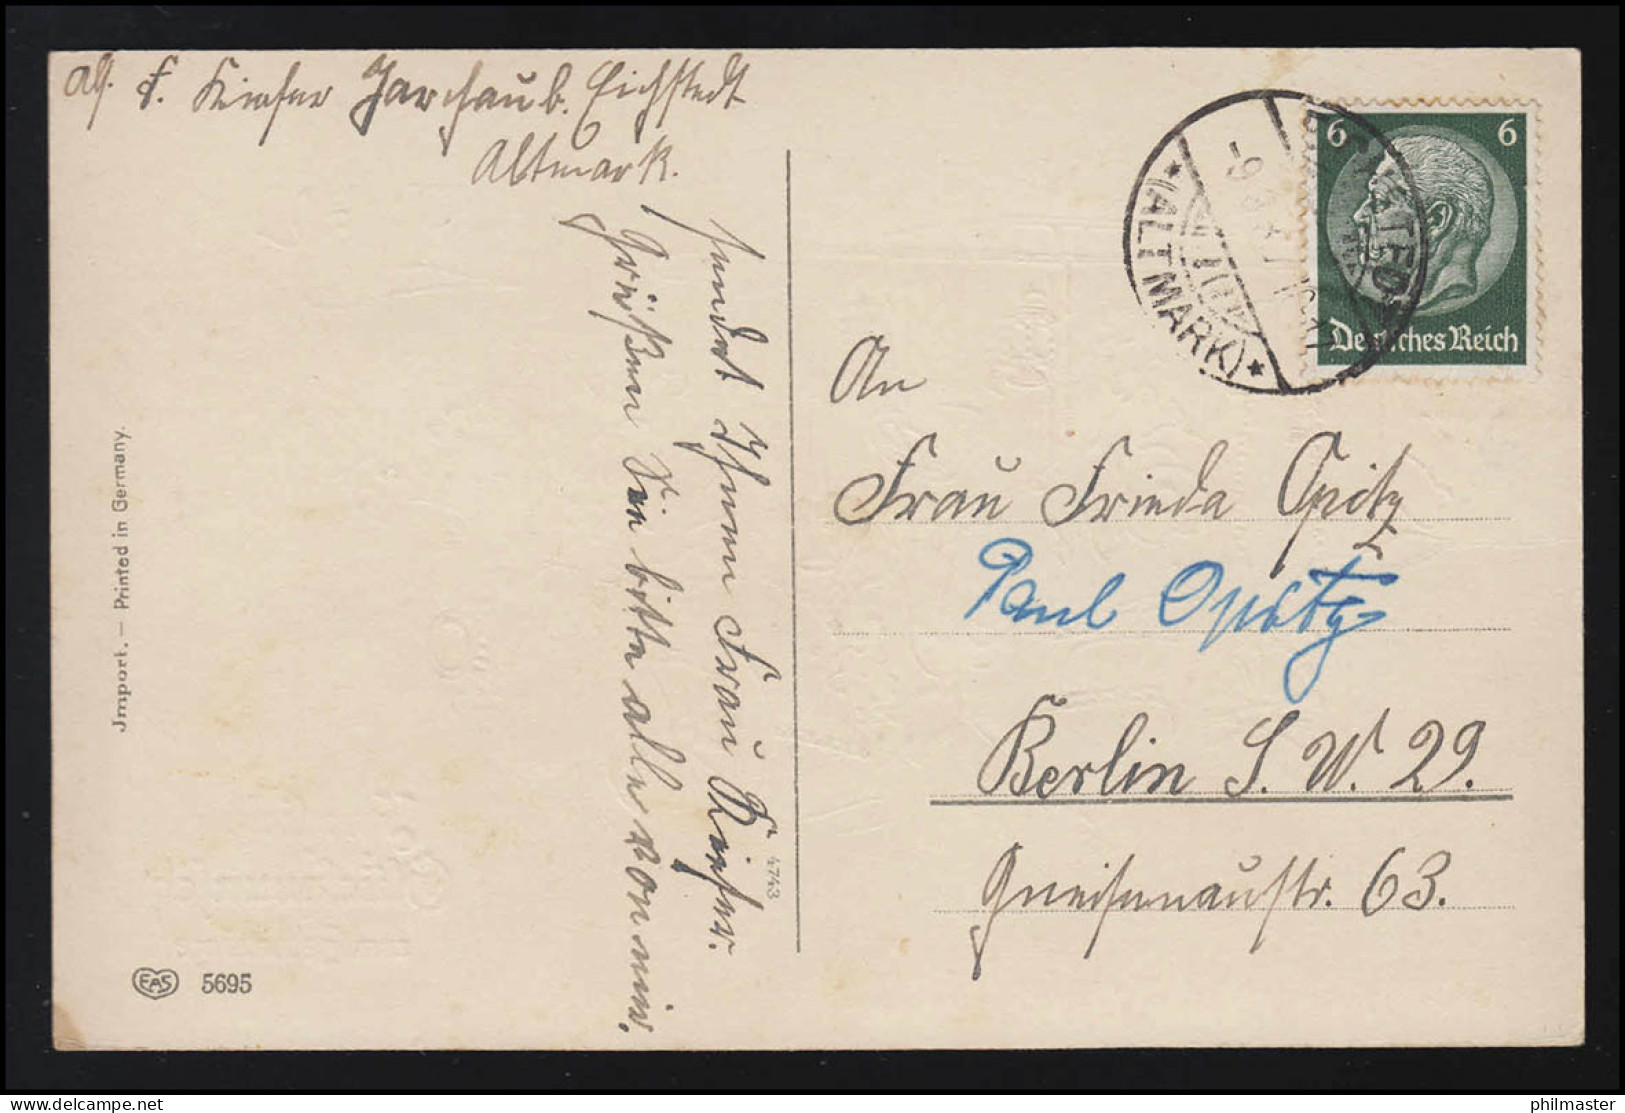 Abs. F. Kiefer Jarchau b. Eichstedt
Altmark.
sendet Ihnen Frau Kiefer.
Grüßen Sie bitte alle von mir.
Jmport. – Printed in Germany.
EAS 5695
4743
(ALTMARK)
6 6
Deutsches Reich
An
Frau Frieda Opitz
Paul Opitz
Berlin S. W. 29.
Gneisenaustr. 63.
philmaster